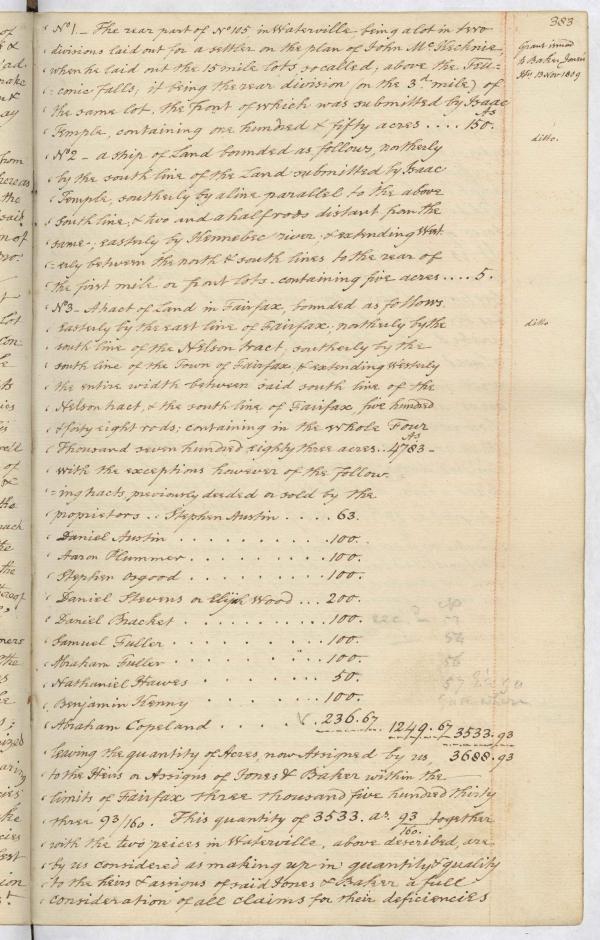 383
No 1 _ The rear part of No 105 in Waterville, being a lot in two
divisions laid out for a settler on the plan of John McKechnie,
when he laid out the 15 mile lots so called, above the Ten=
=conic Falls, it being the rear division (on the 3.d mile) of
the same lot, the front of which was submitted by Isaac
Temple, containing one hundred & fifty acres .... 150. As
Grant issued
to Baker, Jones
Hrs 13 Nov 1809
ditto.
No 2 _ a strip of Land bounded as follows, northerly
by the south line of the Land submitted by Isaac
Temple, southerly by a line parallel to the above
South line, & two and a half rods distant from the
same; easterly by Kennebec river, & extending West
=erly between the north & south lines to the rear of
the first mile or front lots. containing five acres .... 5.
No 3 _ A tract of Land in Fairfax, bounded as follows.
ditto
Easterly by the east line of Fairfax; northerly by the
south line of the Nelson tract, southerly by the
south line of the Town of Fairfax, & extending Westerly
the entire width between said south line of the
Nelson tract, & the south line of Fairfax five hundred
& forty eight rods; containing in the whole Four
Thousand seven hundred eighty three acres .. 4783 _ As
with the exceptions however of the follow.
=ing tracts, previously deeded or sold by the
proprietors .. Stephen Austin .... 63.
Daniel Austin ......... 100.
Aaron Plummer ........ 100.
Stephen Osgood ........ 100.
Daniel Stevens or Elijah Wood ... 200.
Daniel Bracket ........ 100.
Samuel Fuller ........ 100.
Abraham Fuller ....... 100.
Nathaniel Hawes ...... 50.
Benjamin Kenny ...... 100.
Abraham Copeland ..... 236.67 1249.67 3533.93
leaving the quantity of Acres, now Assigned by us, 3688.93
to the Heirs or Assigns of Jones & Baker within the
limits of Fairfax three thousand five hundred thirty
three 93/160. This quantity of 3533. as. 93/160. together
with the two peices in Waterville, above described, are
by us considered as making up in quantity & quality
to the heirs & assigns of said Jones & Baker a full
consideration of all claims for their deficiencies